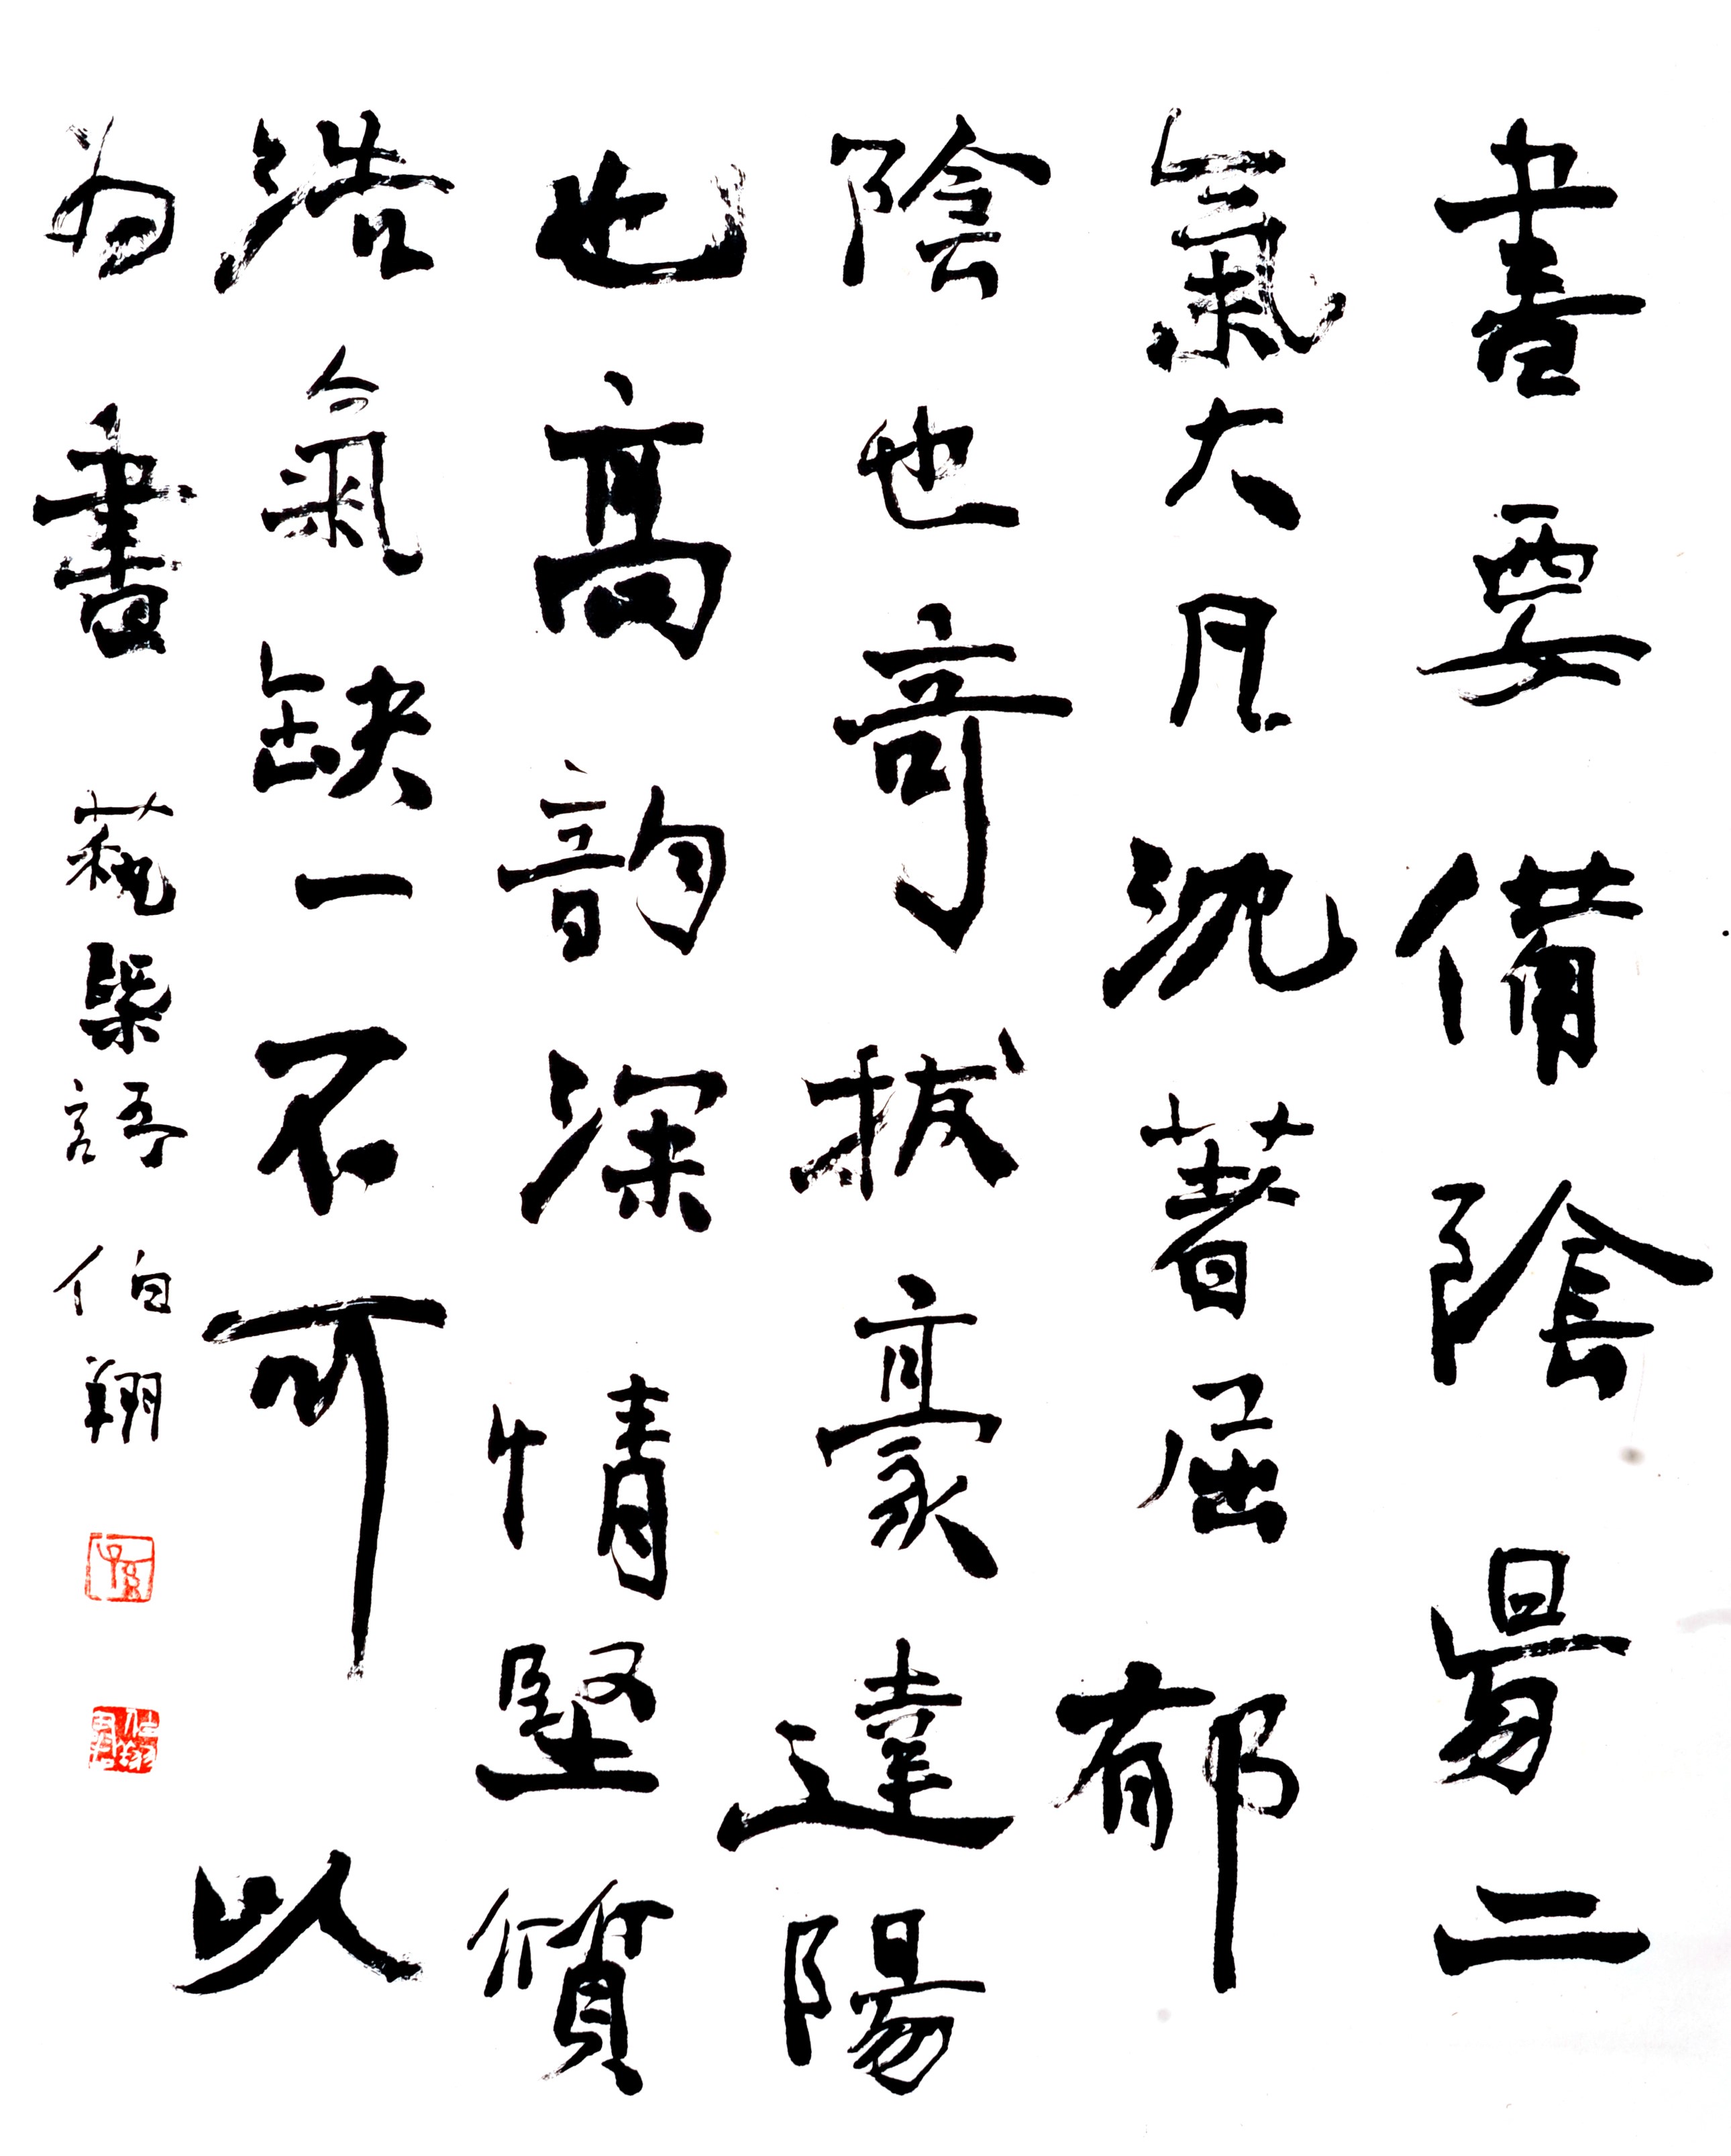 書要備陰昜二
氣大凡沈著屈郁
陰也奇拔豪達陽
也高韵深情堅質
浩氣缺一不可以
為書 藝槩語 伯翔